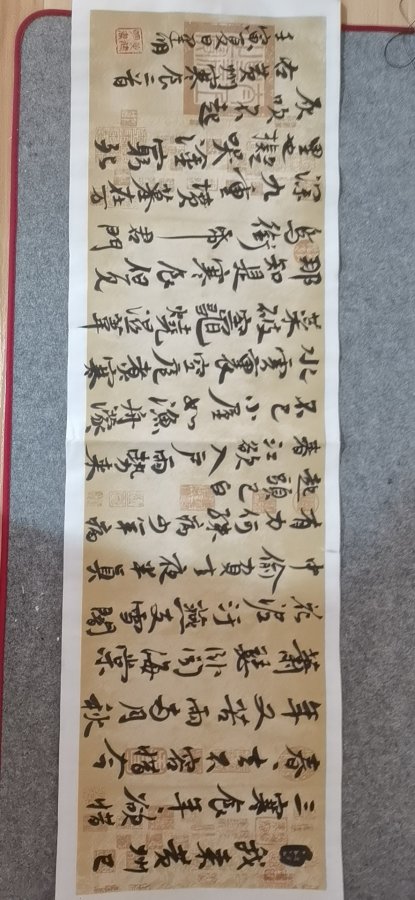 自我来黄州已
三寒食年々欲惜
春々去不容惜今
年又苦雨兩月秋
蕭瑟卧聞海棠
花泥汙燕支雪闇
中偷負去夜半真
有力何殊病少年病
起頭已白
春江欲入戶雨勢来
不已小屋如漁舟濛
水雲裏空庖煮寒
菜破竈燒濕葦
那知是寒食但見
烏銜帋君門
深九重墳墓在万
里也擬哭塗窮死
灰吹不起
右黄州寒食二首
壬寅夏日